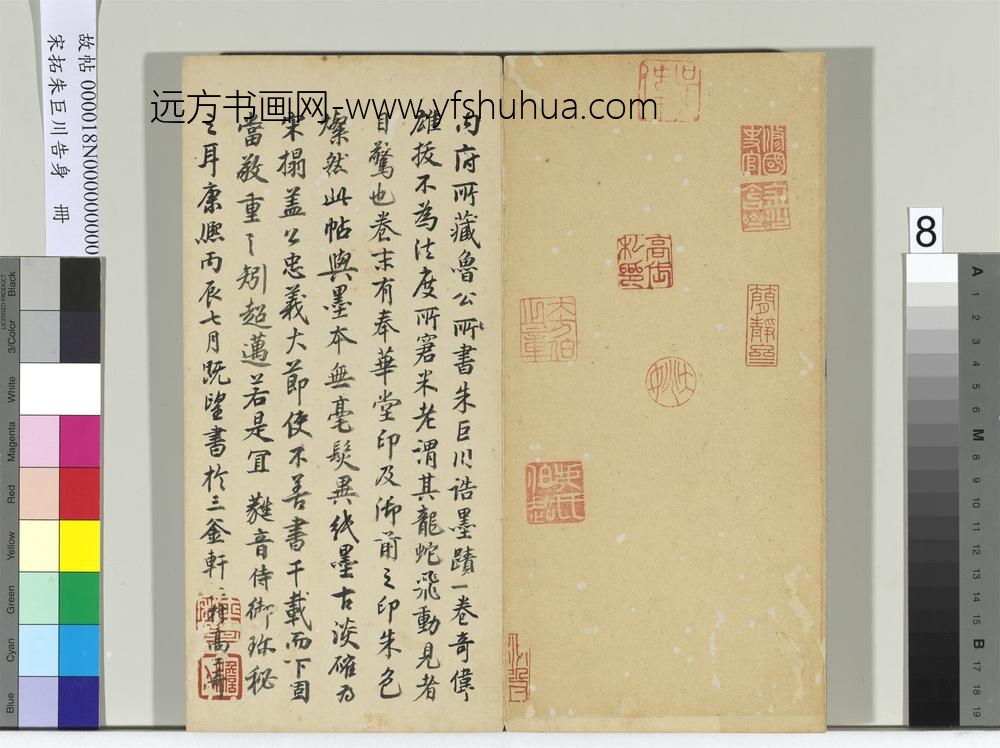 内府所藏魯公所書朱巨川誥墨蹟一卷奇偉
雄拔不為法度所窘米老謂其龍蛇飛動見者
目驚也卷末有奉華堂印及御前之印朱色
燦然此帖與墨本無毫髮異紙墨古淡確為
宋搨蓋公忠義大節使不善書千載而下固
當敬重之矧超邁若是宜蕤音侍御珎秘
之耳康熈丙辰七月既望書於三釜軒
远方书画网-www.yfshuhua.com
故帖 000018N000000000
宋拓朱巨川告身 冊
8
簡靜
高
私印
Black
3/Color
White
Magenta
Red
Yellow
Green
Cyan
Blue
LICENSED PRODUCT
A
1
2
3
4
5
6
M
8
9
10
11
12
13
14
15
B
17
18
19